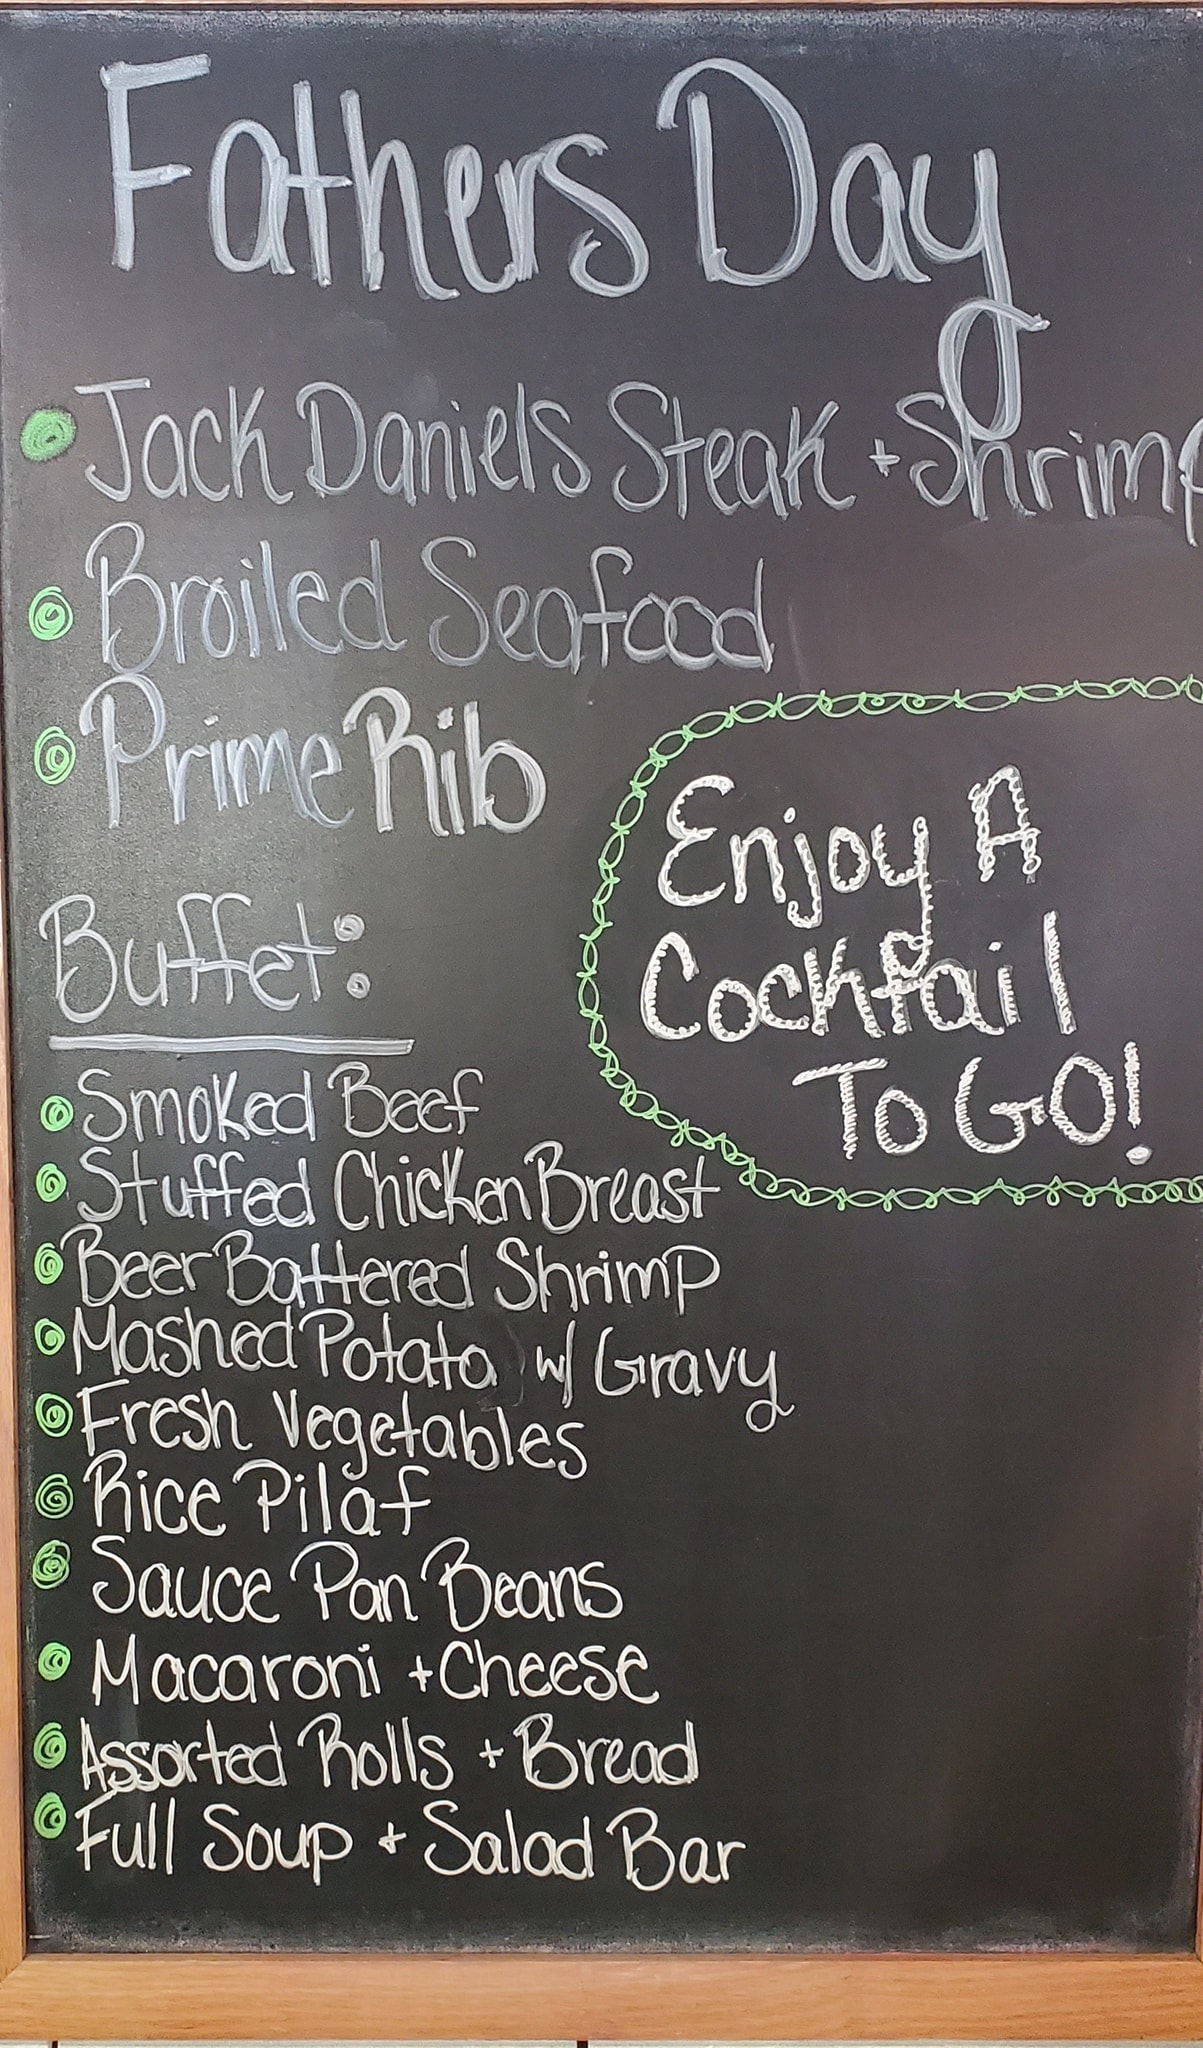 Fathers Day
Jack Daniels Steak + Shrimp
Broiled Seafood
Prime Rib
Enjoy A
Cocktail
To GO!
Buffet:
Smoked Beef
Stuffed Chicken Breast
Beer Battered Shrimp
Mashed Potato w/ Gravy
Fresh Vegetables
Rice Pilaf
Sauce Pan Beans
Macaroni + Cheese
Assorted Rolls + Bread
Full Soup + Salad Bar